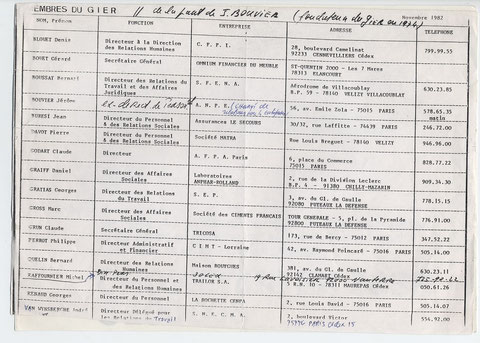 MEMBRES DU GIER // de la part de J. BOUVIER (fondateur du gier en 1974)
Novembre 1982
NOM, Prénom FONCTION ENTREPRISE ADRESSE TELEPHONE
BLOUET Denis Directeur à la Direction des Relations Humaines C.F.P.I. 28, boulevard Camelinat 92233 GENNEVILLIERS Cédex 799.99.55
BORT Gérard Secrétaire Général OMNIUM FINANCIER DU MEUBLE ST-QUENTIN 2000 - Les 7 Mares 78311 ELANCOURT
BOUSSAT Bernard Directeur des Relations du Travail et des Affaires Juridiques S.F.E.N.A. Aérodrome de Villacoublay B.P. 59 - 78140 VELIZY VILLACOUBLAY 630.23.85
BOUVIER Jérôme A.N.P.E. 56, av. Emile Zola - 75015 PARIS 578.65.35 matin
BURESI Jean Directeur du Personnel & des Relations Sociales Assurances LE SECOURS 30/32, rue Laffitte - 74439 PARIS 246.72.00
DAVOT Pierre Directeur du Personnel & des Relations Sociales Société MATRA Rue Louis Breguet - 78140 VELIZY 946.96.00
GODART Claude Directeur A.F.P.A. Paris 6, place du Commerce 75015 PARIS 828.77.22
GRAIFF Daniel Directeur des Affaires Sociales Laboratoires ANPHAR-ROLLAND 2, rue de la Division Leclerc B.P. 4 - 91380 CHILLY-MAZARIN 909.34.30
GRATIAS Georges Directeur des Relations du Travail S.E.P. 3, av. du Gl. de Gaulle 92080 PUTEAUX LA DEFENSE 778.15.15
GROSS Marc Directeur des Affaires Sociales Société des CIMENTS FRANCAIS TOUR GENERALE - 5, pl. de la Pyramide 92800 PUTEAUX LA DEFENSE 776.91.00
GRUN Claude Secrétaire Général TRICOSA 173, rue de Bercy - 75012 PARIS 347.52.22
PERROT Philippe Directeur Administratif et Financier CIMT - Lorraine 42, av. Raymond Poincaré - 75016 PARIS 505.14.00
QUELIN Bernard Directeur des Relations Humaines Maison BOUYGUES 381, av. du Gl. de Gaulle 92142 CLAMART Cédex 630.23.11
RAFFOURNIER Michel Directeur du Personnel et des Relations Humaines TRAILOR S.A. R.N. 10 - 78311 MAUREPAS Cédex 050.61.26
RENARD Georges Directeur du Personnel LA ROCHETTE CENPA 2, rue Louis David - 75016 PARIS 505.14.07
VAN WYSBERGHE André Directeur Délégué pour les Relations du Travail S.N.E.C.M.A. 2, boulevard Victor 75724 PARIS Cédex 15 554.92.00